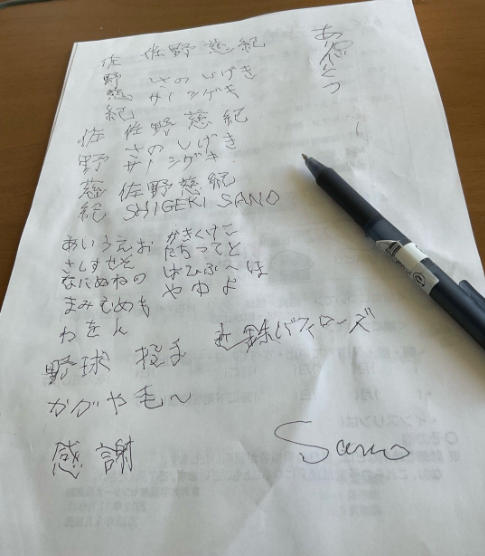 佐野慈紀
さのしげき
サノシゲキ
佐野慈紀
佐野慈紀
さのしげき
サノシゲキ
佐野慈紀
佐野慈紀
SHIGEKI SANO
あいうえお かきくけこ
さしすせそ たちつてと
なにぬねの はひふへほ
まみむめも やゆよ
わをん
野球 投手 近鉄バファローズ
かがや毛〜
感謝
Sano